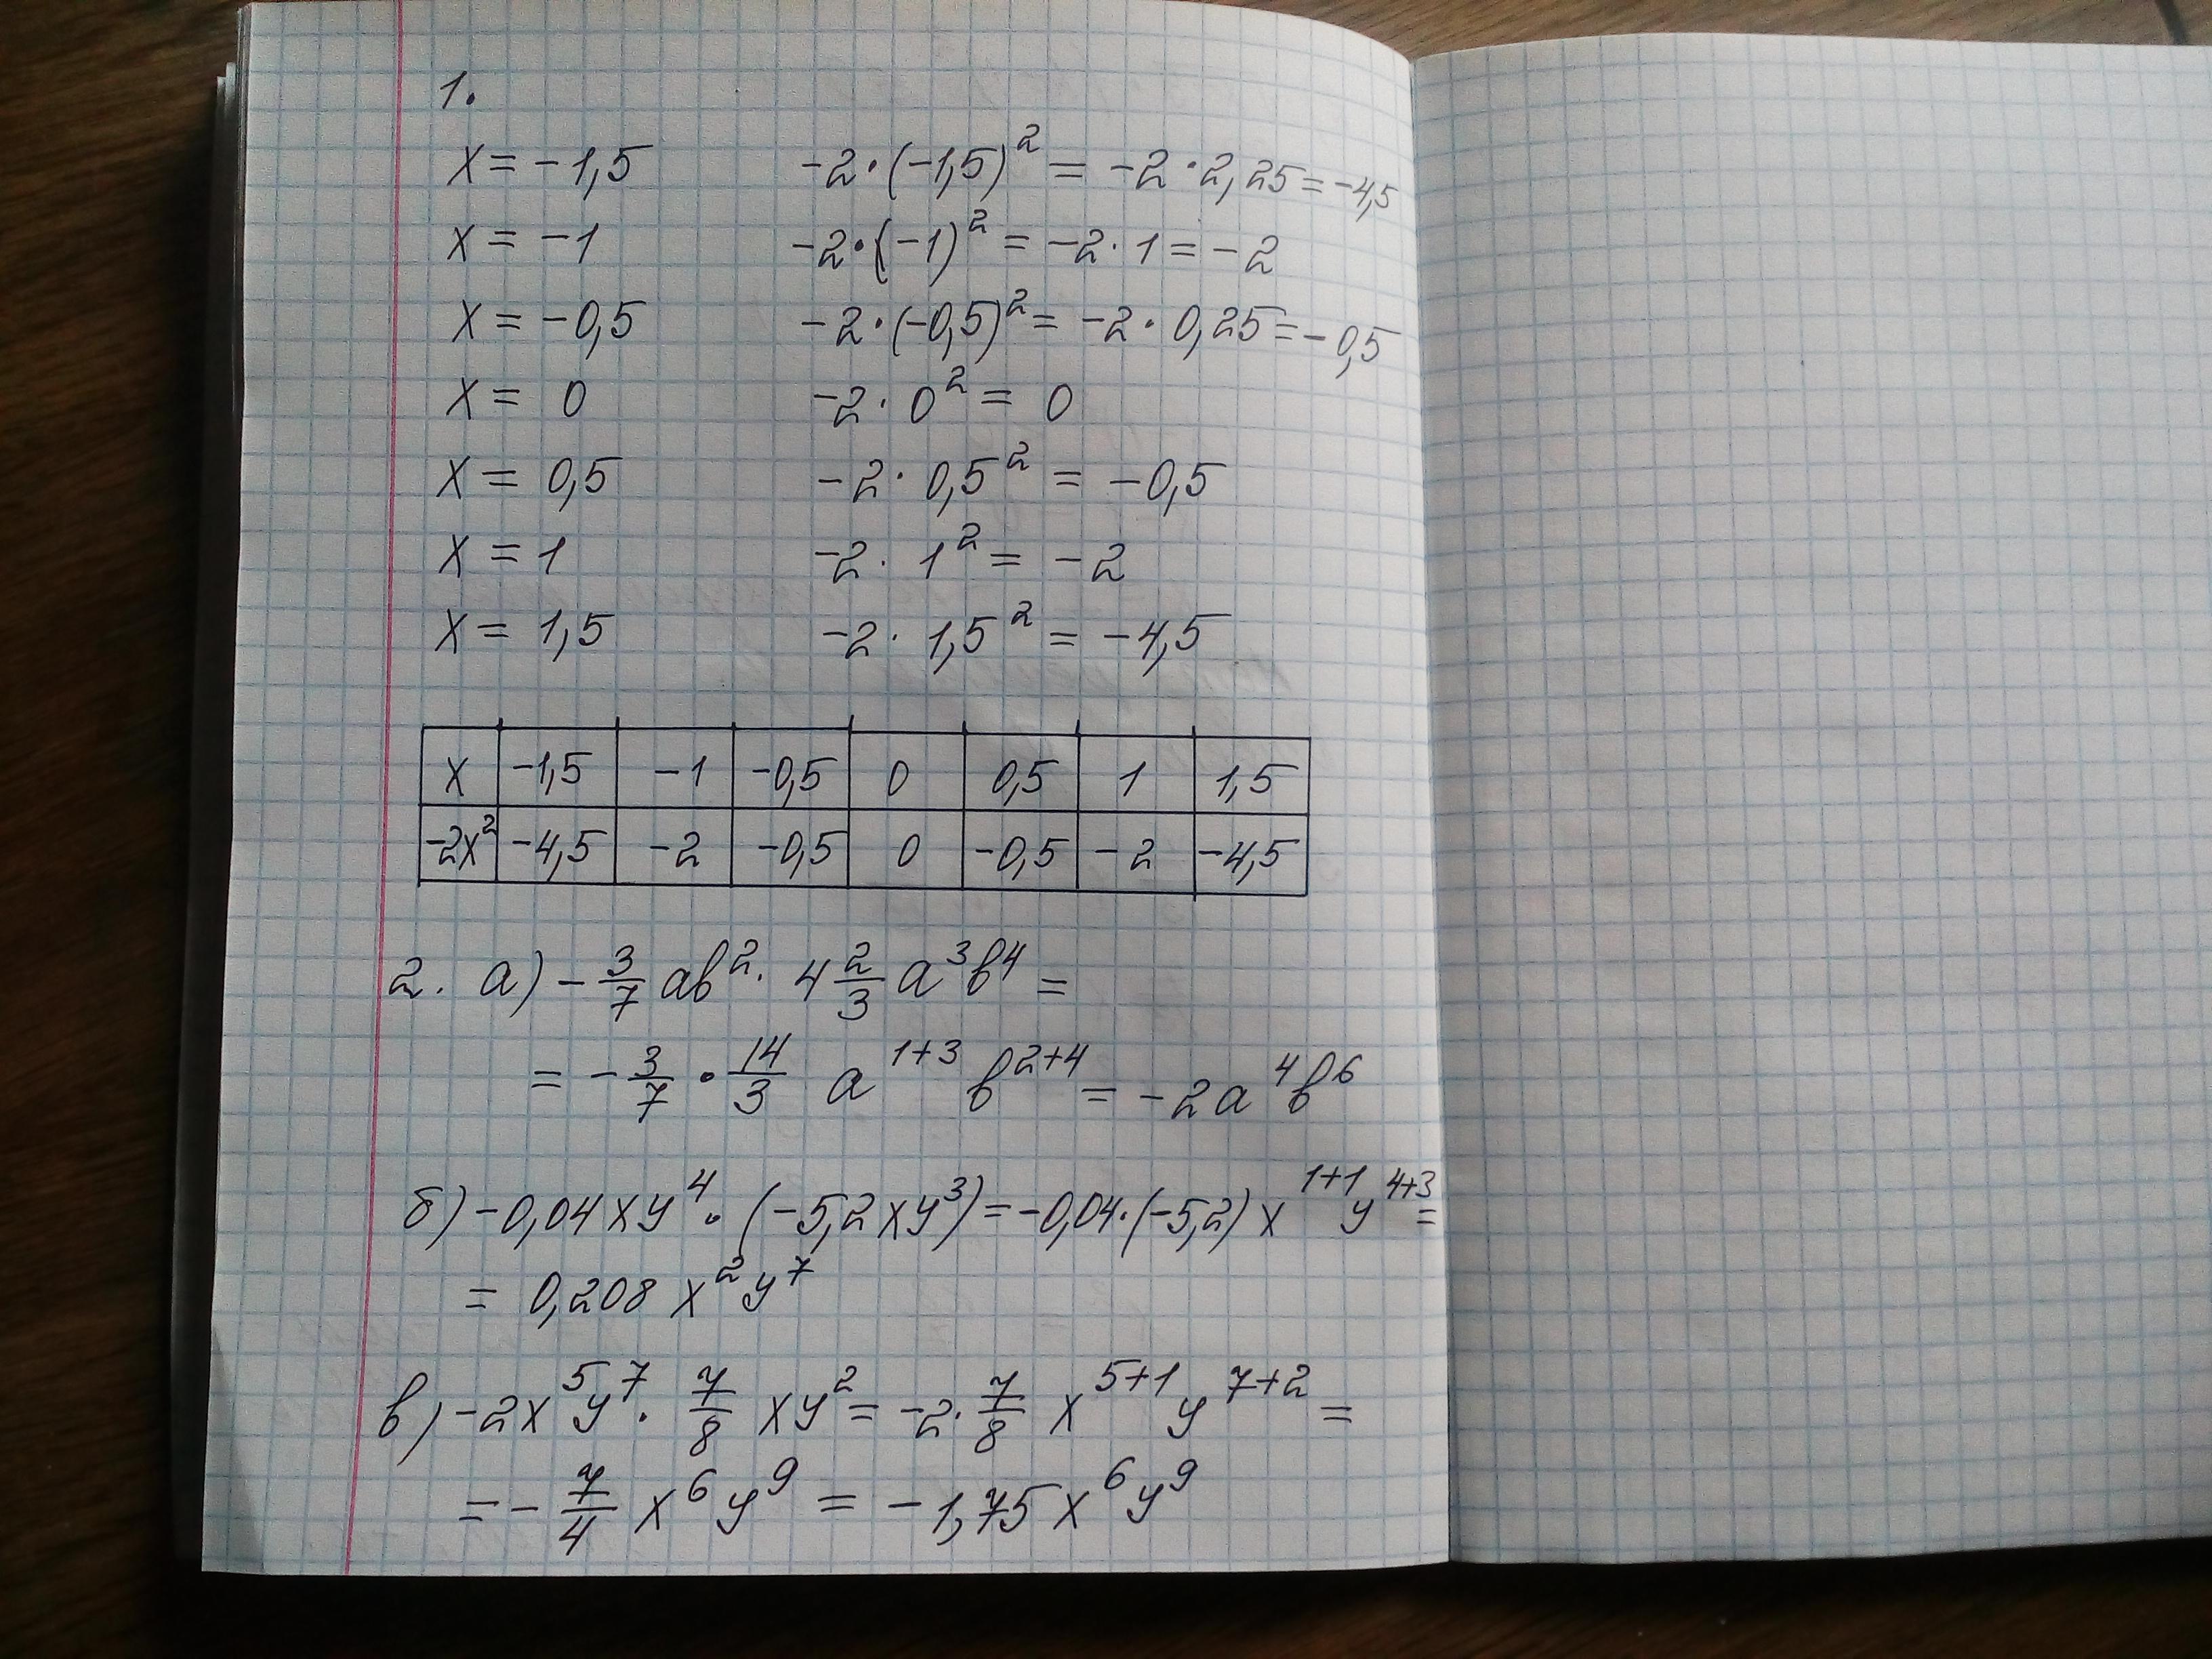 1.
x = -1,5 -2·(-1,5)² = -2·2,25 = -4,5
x = -1 -2·(-1)² = -2·1 = -2
x = -0,5 -2·(-0,5)² = -2·0,25 = -0,5
x = 0 -2·0² = 0
x = 0,5 -2·0,5² = -0,5
x = 1 -2·1² = -2
x = 1,5 -2·1,5² = -4,5
x -1,5 -1 -0,5 0 0,5 1 1,5
-2x² -4,5 -2 -0,5 0 -0,5 -2 -4,5
2. а) - 3/7 ab² · 4 2/3 a³b⁴ =
= - 3/7 · 14/3 a¹⁺³ b²⁺⁴ = -2a⁴b⁶
б) -0,04xy⁴ · (-5,2xy³) = -0,04·(-5,2) x¹⁺¹ y⁴⁺³ =
= 0,208 x²y⁷
в) -2x⁵y⁷ · 7/8 xy² = -2 · 7/8 x⁵⁺¹ y⁷⁺² =
= - 7/4 x⁶y⁹ = -1,75x⁶y⁹